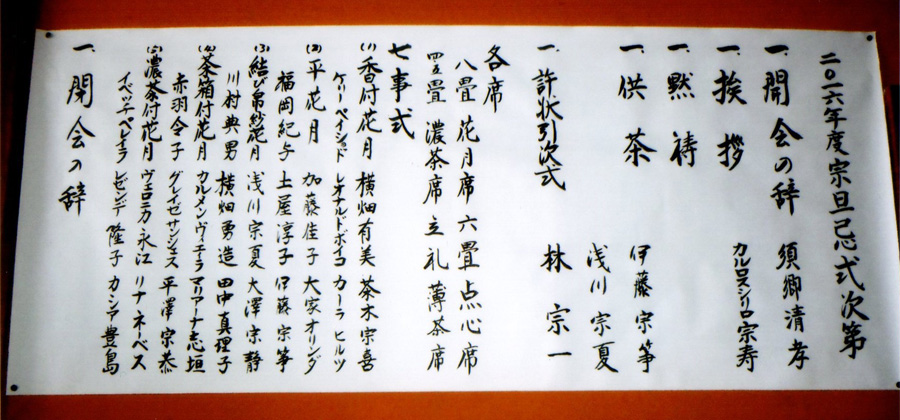 二〇一六年度宗旦忌式次第
一、開会の辞 須郷清孝
一、挨拶 カルロスシロ宗寿
一、黙祷
一、供茶 伊藤宗筝
浅川宗夏
一、許状引次式 林宗一
各席
八畳 花月席 六畳 点心席
四五畳 濃茶席 立礼 薄茶席
七事式
(1) 香付花月 横畑有美 茶木宗喜
ケリーベイショッド レオナルドボイコ カーラヒルツ
(2) 平花月 加藤佳子 大家オリンダ
福岡紀与 土屋淳子 伊藤宗筝
(3) 結び帛紗花月 浅川宗夏 大澤宗静
川村典男 横畑勇造 田中真理子
(4) 茶箱付花月 カルメンヴィエイラ マリアーナ志垣
赤羽令子 グレイゼサンシェス 平澤宗恭
(5) 濃茶付花月 ヴェロニカ永江 リナネーベス
イベッチペレイラ レゼンデ隆子 カシア豊島
一、閉会の辞